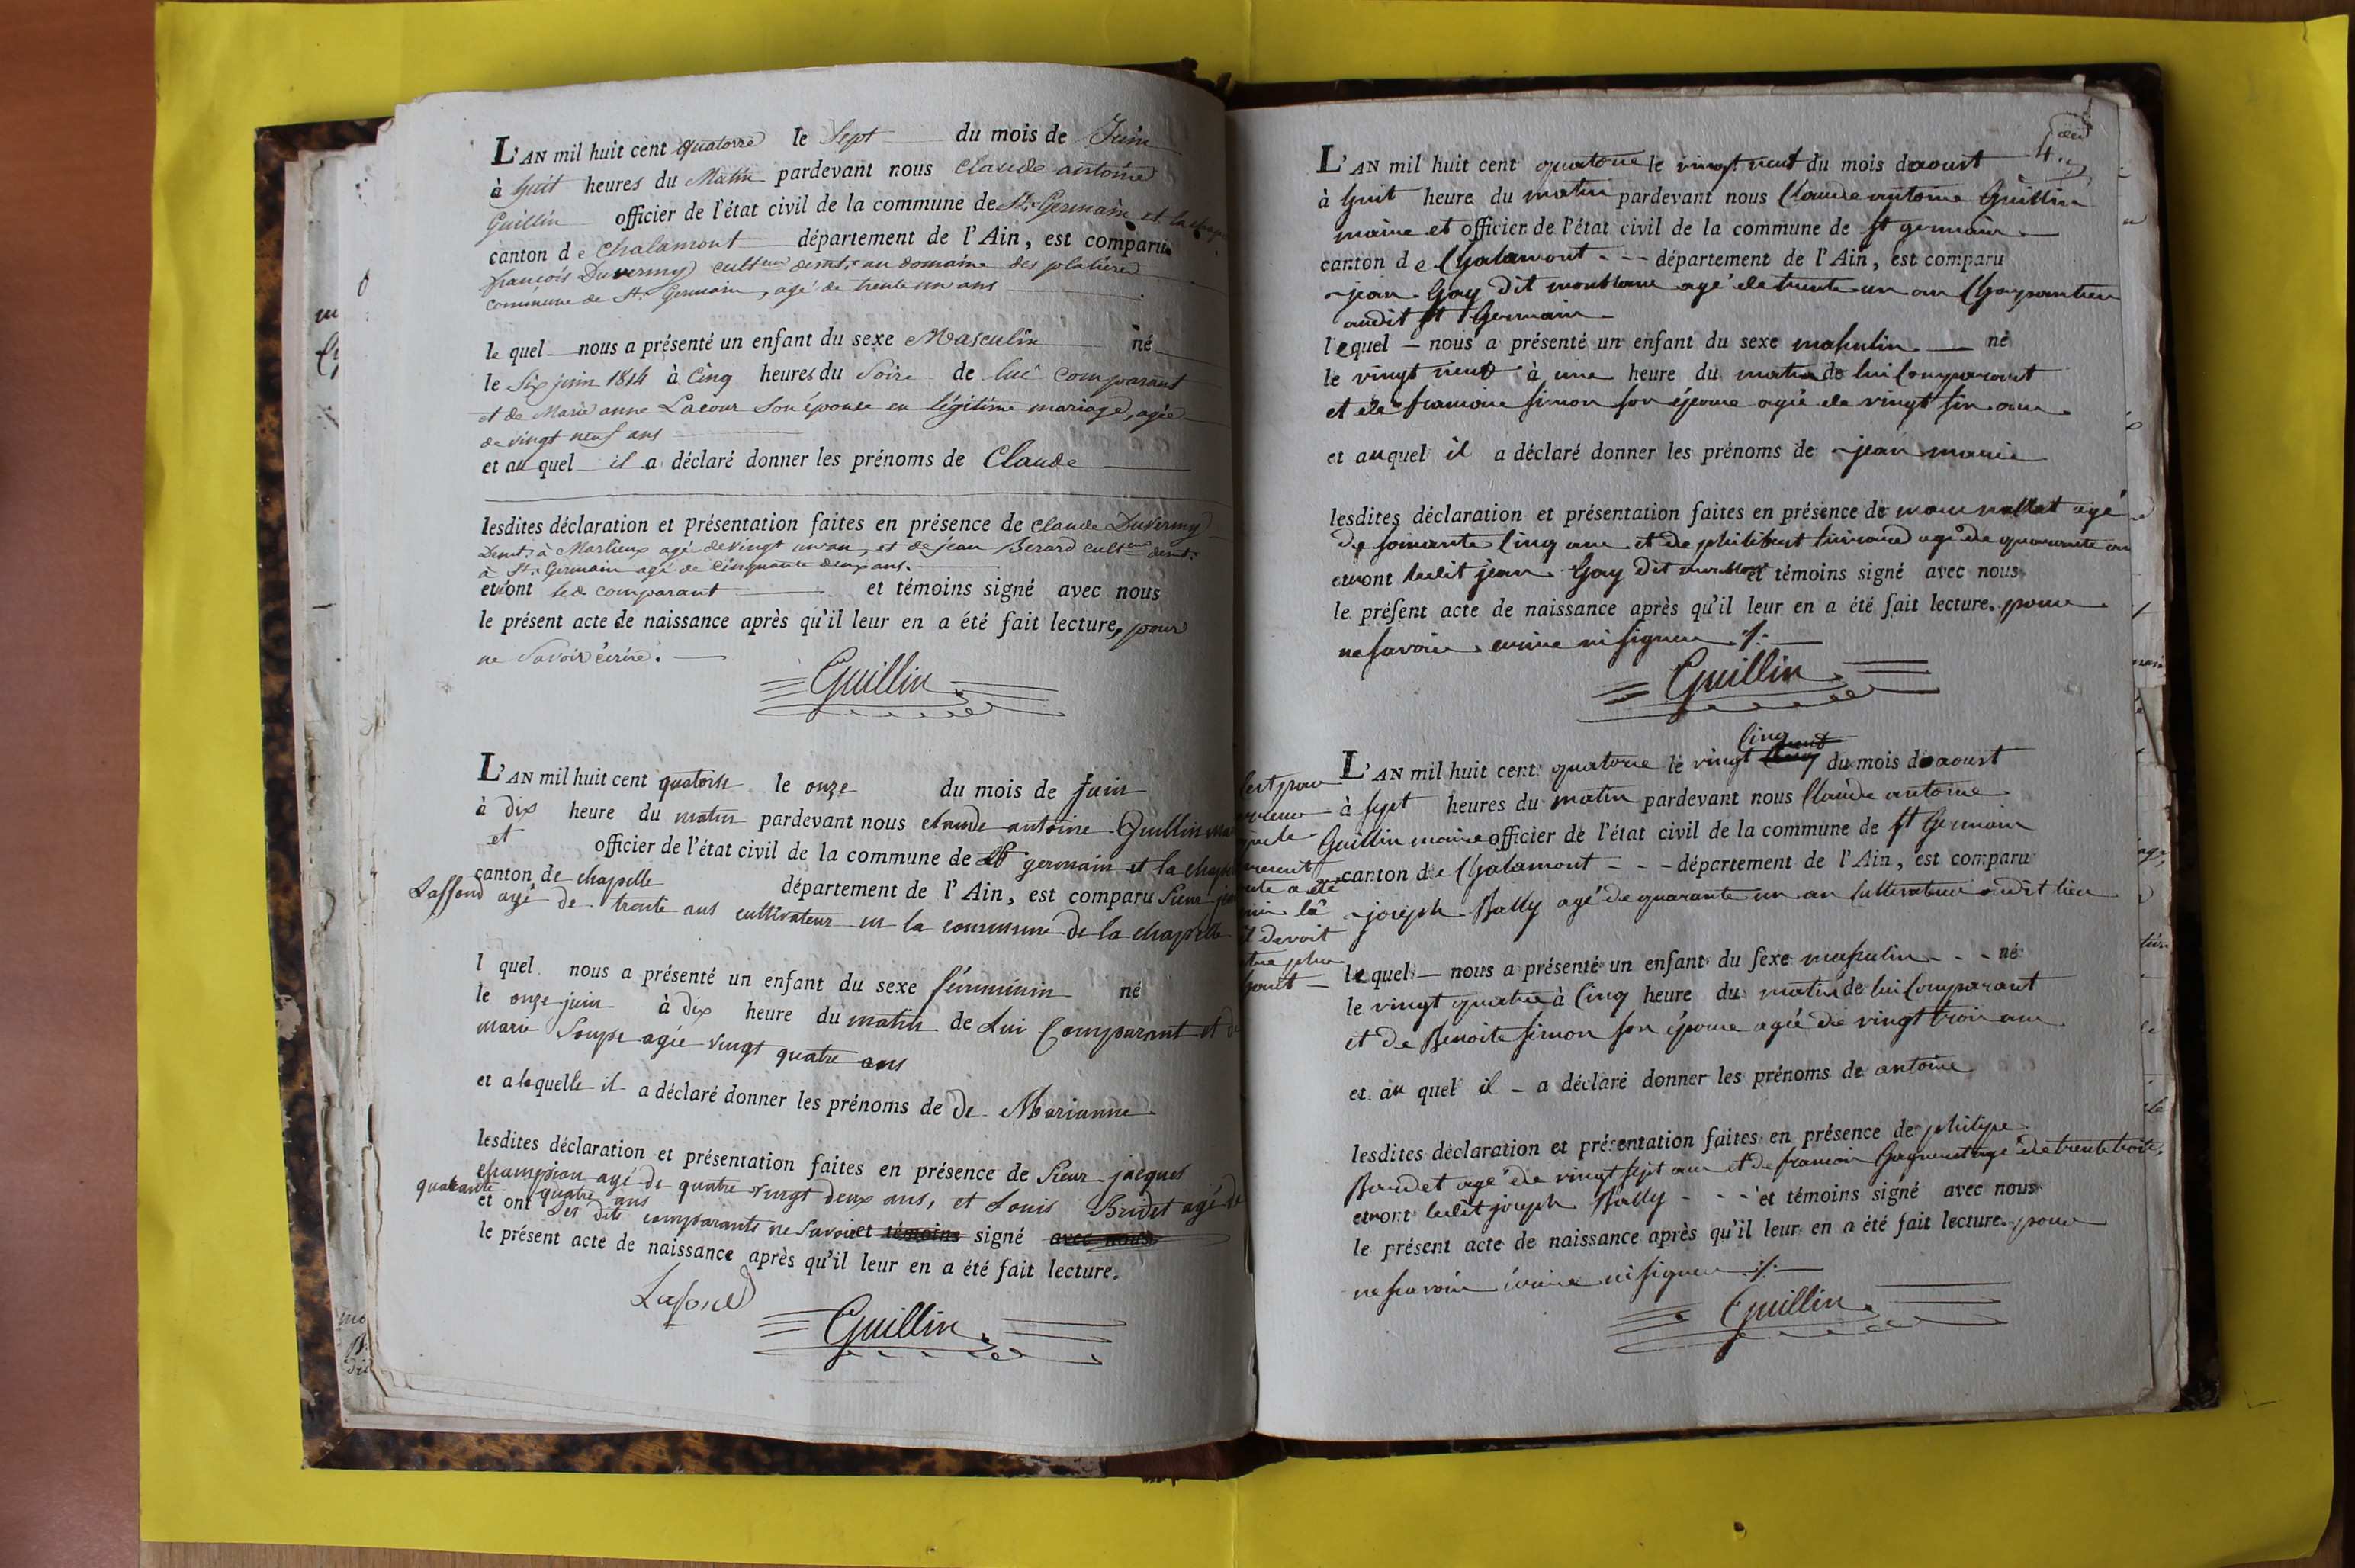 L'AN mil huit cent quatorze le Sept du mois de Juin
à huit heures du Matin pardevant nous Claude antoine
Guillin officier de l'état civil de la commune de St. Germain et la
canton de Chalamont département de l'Ain, est comparu
françois Duvermy cultur demt. au domaine des platières
commune de St. Germain, agé de trente un ans
le quel nous a présenté un enfant du sexe Masculin né
le Six juin 1814 à Cinq heures du Soir de lui comparant
et de Marie anne Lacour Son épouse en légitime mariage, agée
de vingt neuf ans
et au quel il a déclaré donner les prénoms de Claude
lesdites déclaration et présentation faites en présence de Claude Duvermy
Demt. à Marlieux agé de vingt un an, et de jean Berard cultur demt.
à St. Germain agé de Cinquante deux ans.
et ont led comparant et témoins signé avec nous
le présent acte de naissance après qu'il leur en a été fait lecture, pour
ne Savoir écrire.
Guillin
L'AN mil huit cent quatorze le onze du mois de juin
à dix heure du matin pardevant nous claude antoine Guillin
et officier de l'état civil de la commune de St germain et la
canton de chapelle département de l'Ain, est comparu Sieur
Laffond agé de trente ans cultivateur en la commune de la chapelle
l quel nous a présenté un enfant du sexe féminimin né
le onze juin à dix heure du matin de Lui Comparant et de
marie Soupe agée vingt quatre ans
et a laquelle il a déclaré donner les prénoms de de Marianne
lesdites déclaration et présentation faites en présence de Sieur jacques
champion agé de quatre vingt deux ans, et Louis Bridet agé de
quarante quatre ans
et ont Les dits comparants ne Savoir et témoins signé avec nous
le présent acte de naissance après qu'il leur en a été fait lecture.
Lafond
Guillin
L'AN mil huit cent quatorze le vingt neuf du mois daoust
à huit heure du matin pardevant nous Claude antoine Guillin
maire et officier de l'état civil de la commune de st germain
canton de Chalamont département de l'Ain, est comparu
jean Gay dit montblanc agé de trente un an Charpantier
audit st Germain
lequel nous a présenté un enfant du sexe masculin né
le vingt neuf à une heure du matin de lui Comparant
et de francoise simon son épouse agée de vingt six ans
et auquel il a déclaré donner les prénoms de jean marie
lesdites déclaration et présentation faites en présence de marc mallet agé
de soixante Cinq ans et de philibert agé de quarante an
et ont ledit jean Gay dit et témoins signé avec nous
le présent acte de naissance après qu'il leur en a été fait lecture. pour
ne savoir écrire ni signer ./.
Guillin
L'AN mil huit cent quatorze le vingt Cinq du mois daoust
à sept heures du matin pardevant nous Claude antoine
Guillin maire officier de l'état civil de la commune de st Germain
canton de Chalamont département de l'Ain, est comparu
joseph Bally agé de quarante un an Cultivateur audit lieu
lequel nous a présenté un enfant du sexe masculin né
le vingt quatre à Cinq heure du matin de lui Comparant
et de Benoite simon son épouse agée de vingt trois ans
et au quel il a déclaré donner les prénoms de antoine
lesdites déclaration et présentation faites en présence de philipe
Baudet agé de vingt sept ans et de francois agé de trente trois
et ont ledit joseph Bally et témoins signé avec nous
le présent acte de naissance après qu'il leur en a été fait lecture. pour
ne savoir écrire ni signer ./.
Guillin